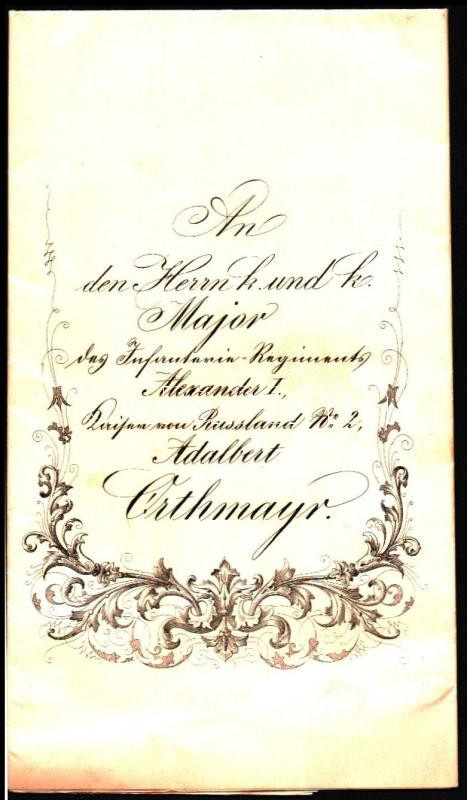 An
den Herrn k. und k.
Major
des Infanterie-Regiments
Alexander I.,
Kaiser von Russland No. 2,
Adalbert
Orthmayr.